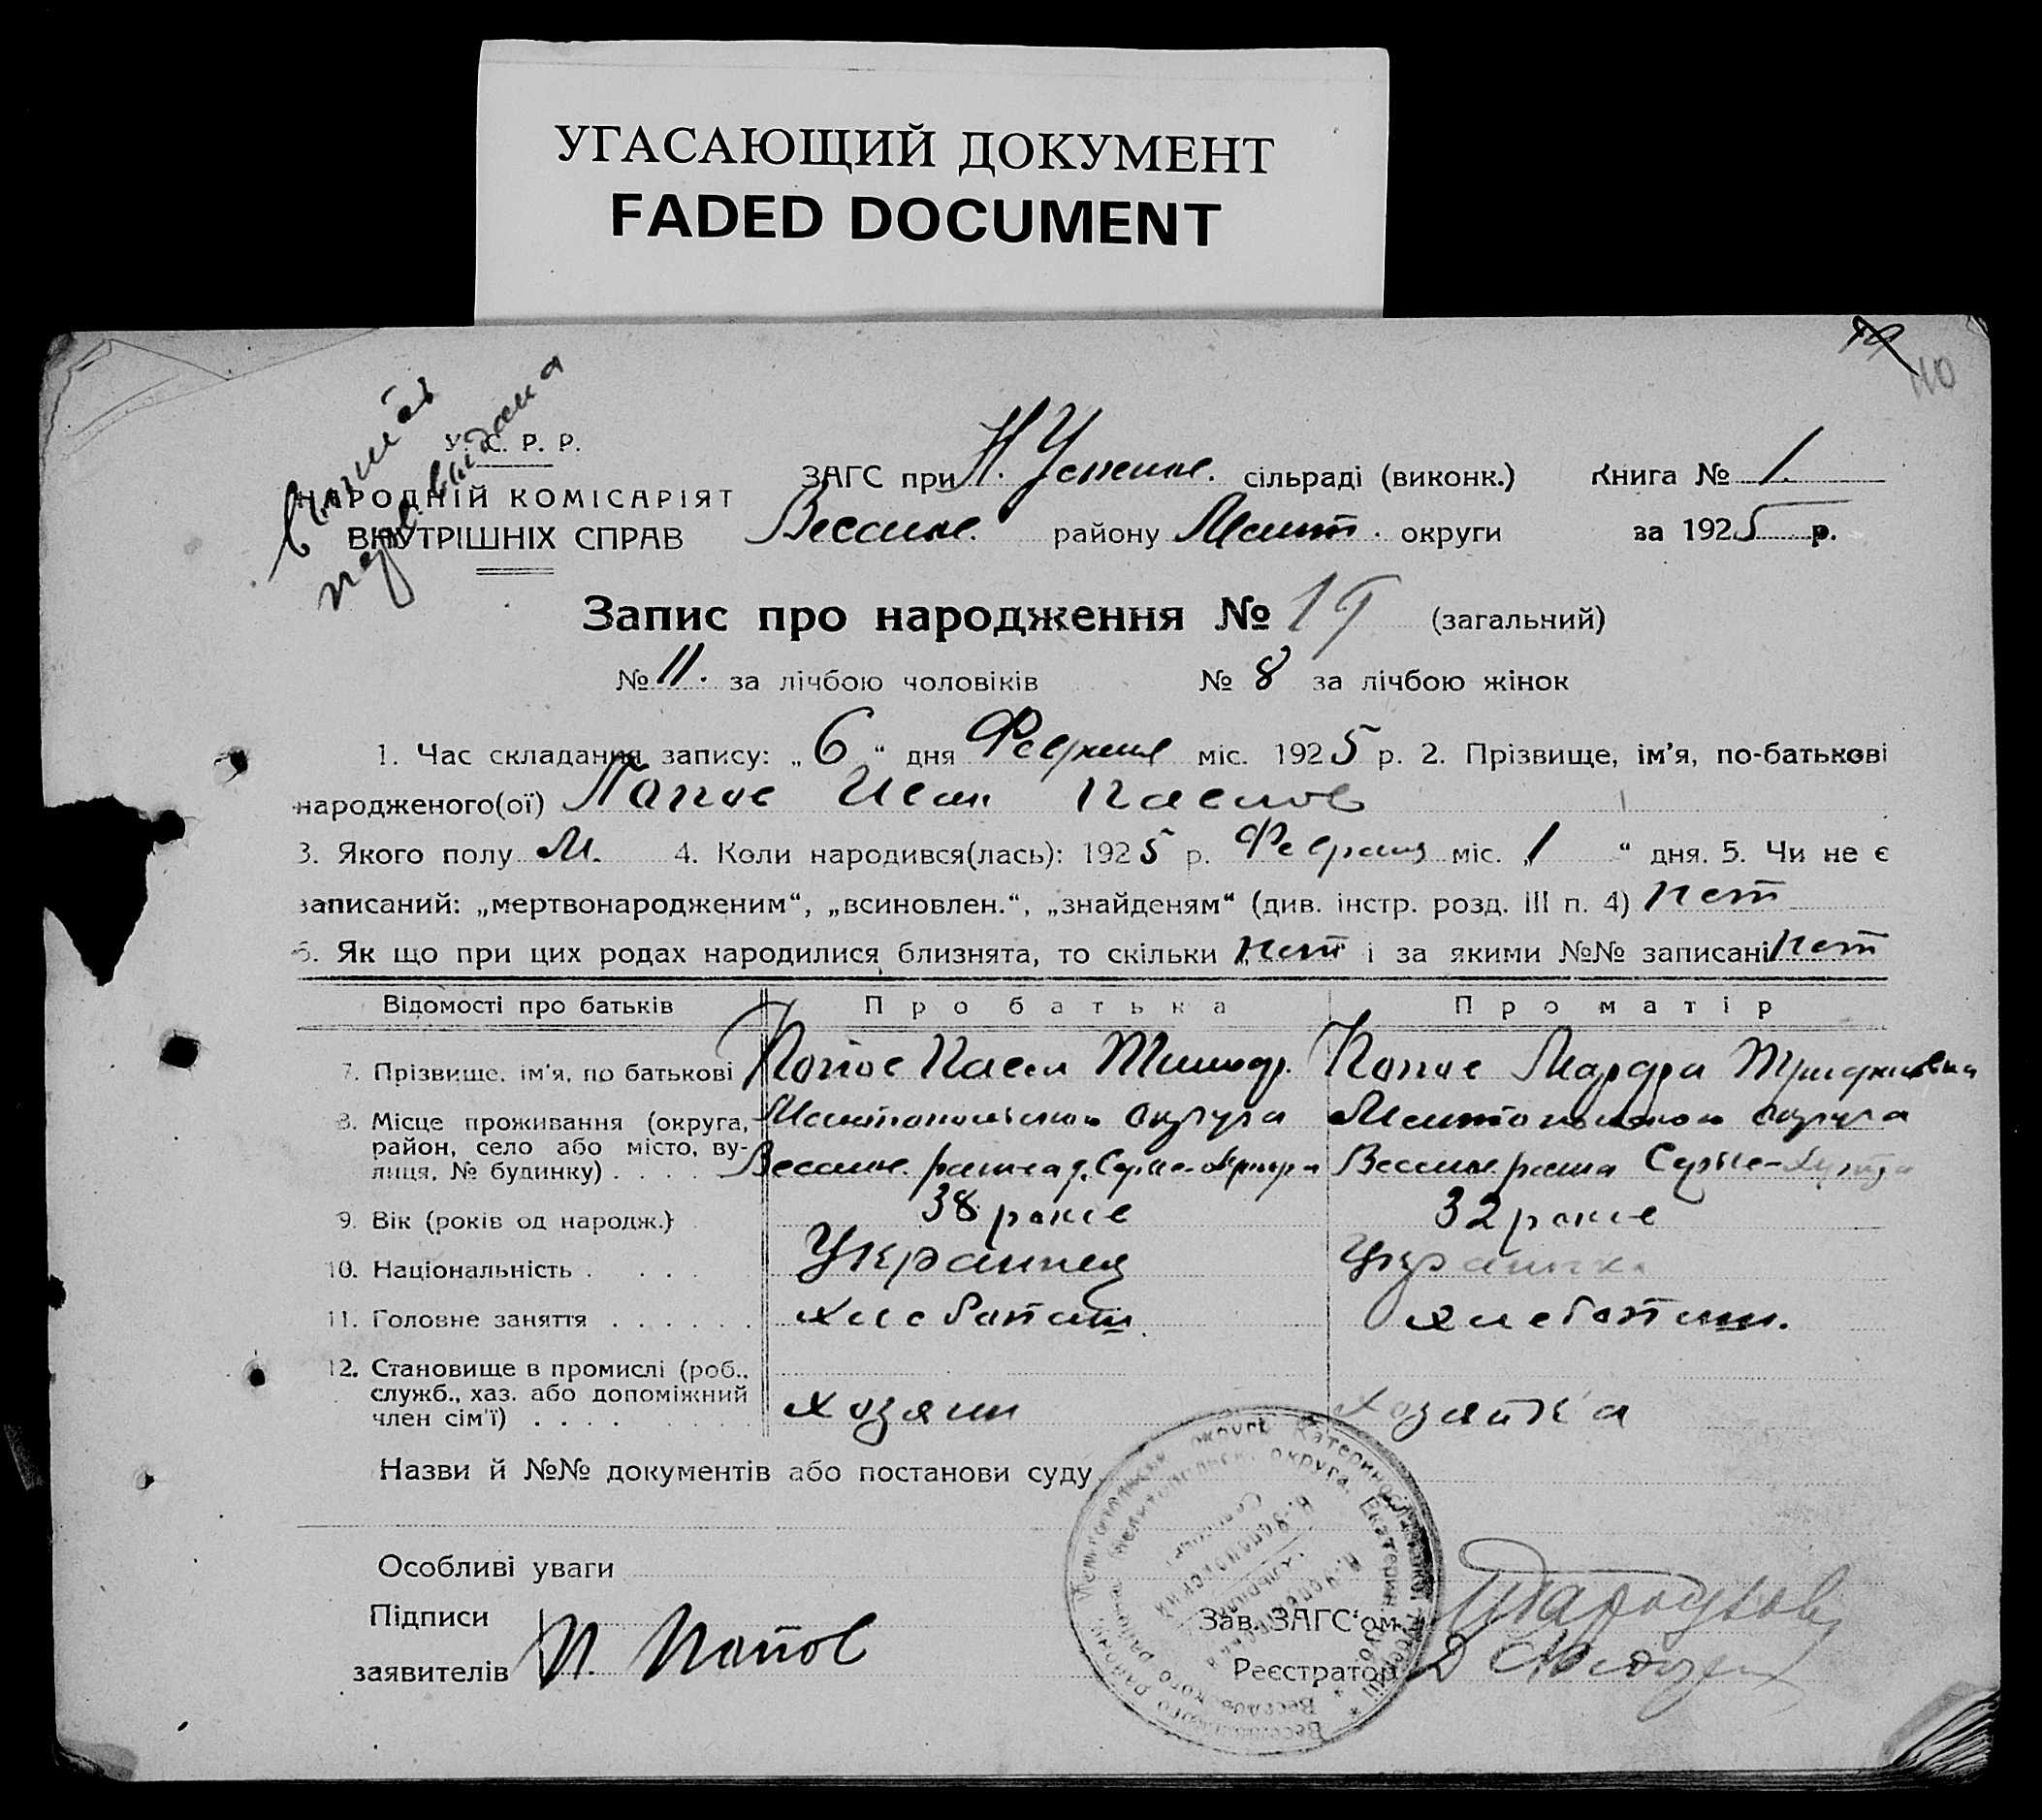 УГАСАЮЩИЙ ДОКУМЕНТ
FADED DOCUMENT
40
У. С. Р. Р.
НАРОДНІЙ КОМІСАРІЯТ
ВНУТРІШНІХ СПРАВ
видана
ЗАГС при Н. Успене. сільраді (виконк.) Книга № 1.
Весели. району Мелит. округи за 1925 р.
Запис про народження № 19 (загальний)
№ 11. за лічбою чоловіків № 8 за лічбою жінок
1. Час складання запису: „6“ дня Февраля міс. 1925 р. 2. Прізвище, ім'я, по-батькові
народженого(ої) Попов Иван Павлов
3. Якого полу М. 4. Коли народився(лась): 1925 р. Февраля міс. „1“ дня. 5. Чи не є
записаний: „мертвонародженим“, „всиновлен.“, „знайденям“ (див. інстр. розд. III п. 4) Нет
6. Як що при цих родах народилися близнята, то скільки „нет“ і за якими №№ записані Нет
Відомості про батьків Про батька Про матір
7. Прізвище, ім'я, по батькові Попов Павел Тимоф. Попов Марфа
8. Місце проживання (округа, Мелитопольской округа Мелитопольской округа
район, село або місто, ву-
лиця, № будинку) . . . . Весели. района Весели. района
9. Вік (років од народж.) 38 років 32 років
10. Національність . . . . Украинец Украинка
11. Головне заняття . . . . . . хлебопаш. хлебопаш.
12. Становище в промислі (роб.,
служб., хаз. або допоміжний
член сім'ї) . . . . хозяин хозяйка
Назви й №№ документів або постанови суду
Особливі уваги
Підписи
заявителів П. Попов
Зав. ЗАГС'ом
Реєстратор